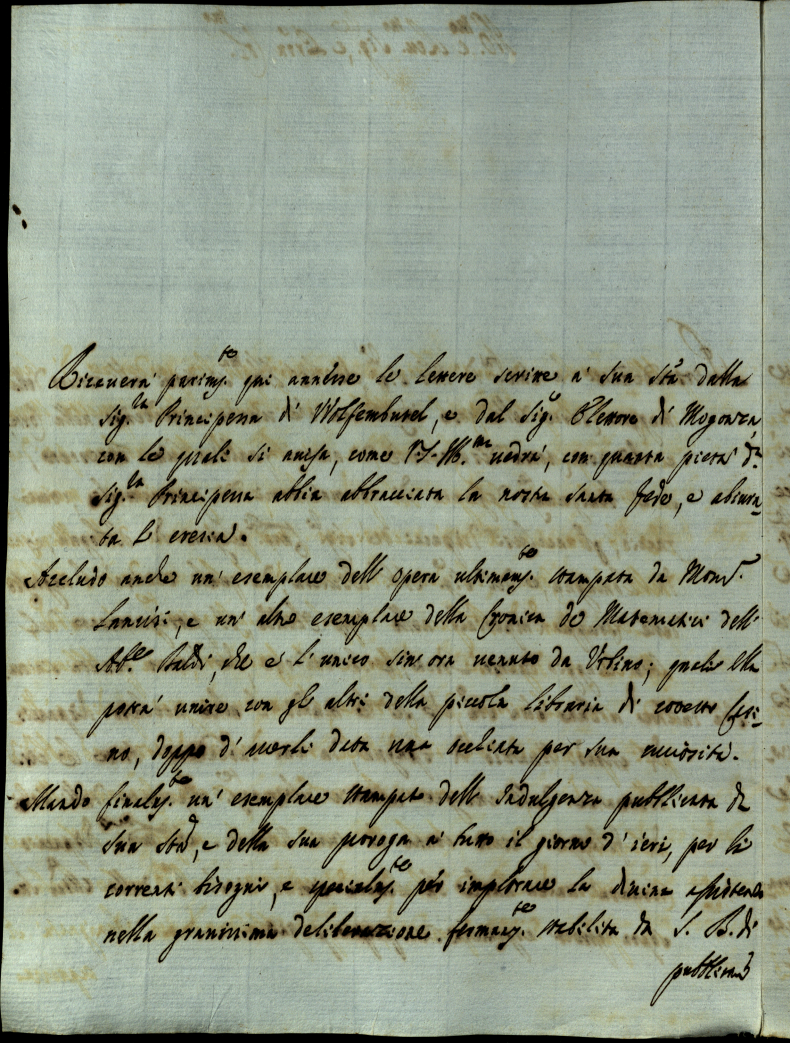 Riceverà parim.te qui annesse le lettere scritte a sua S.tà dalla
sig.ra Principessa di Wolfembutel, e dal sig.r Elettore di Mogonza,
con le quali si avvisa, come V.S. Ill.ma vedrà, con quanta pietà d.a
sig.ra Principessa abbia abbracciata la nostra santa fede, e abiura-
ta l'eresia.
Accludo anche un' esemplare dell' opera ultimam.te stampata da Mons.r
Lancisi, e un' altro esemplare della Cronica de Matematici dell'
Ab.te Baldi, che è l'unico sin' ora venuto da Urbino; quali Ella
potrà unire con gl' altri della piccola libraria di cotesto Casi-
no, doppo d' averli data una occhiata per sua curiosità.
Mando finalm.te un' esemplare stampato dell' Indulgenza pubblicata da
sua S.tà, e della sua proroga a tutto il giorno d' ieri, per li
correnti bisogni, e specialm.te per implorare la divina assistenza
nella gravissima deliberazione fermam.te stabilita da S. B. di